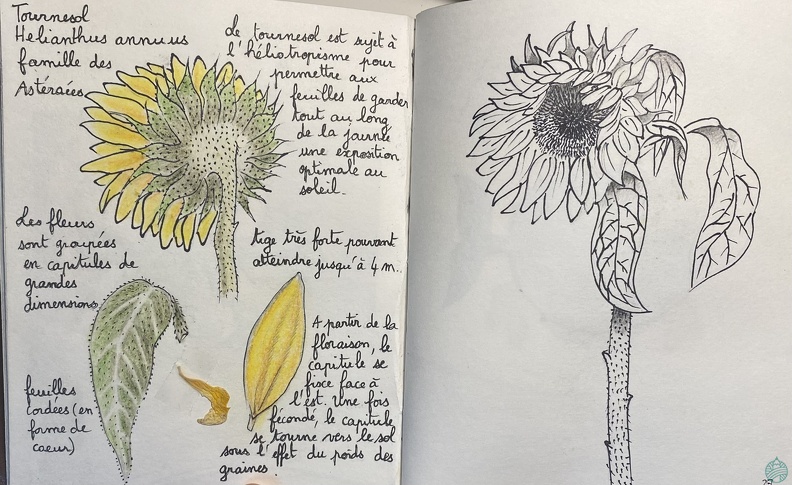 Tournesol
Helianthus annuus
famille des
Astéracées
Le tournesol est sujet à
l'héliotropisme pour
permettre aux
feuilles de garder
tout au long
de la journée
une exposition
optimale au
soleil.
Les fleurs
sont groupées
en capitules de
grandes
dimensions
tige très forte pouvant
atteindre jusqu'à 4 m..
A partir de la
floraison, le
capitule se
fixe face à
l'est. Une fois
fécondé, le capitule
se tourne vers le sol
sous l'effet du poids des
graines.
feuilles
cordées (en
forme de
coeur)